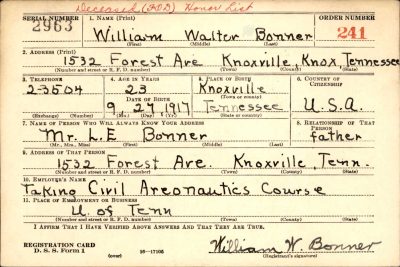 Deceased (FOD) Honor List
SERIAL NUMBER 1. NAME (Print) ORDER NUMBER
2963 William Walter Bonner 241
(First) (Middle) (Last)
2. ADDRESS (Print)
1532 Forest Ave Knoxville, Knox, Tennessee
(Number and street or R. F. D. number) (Town) (County) (State)
3. TELEPHONE 4. AGE IN YEARS 5. PLACE OF BIRTH 6. COUNTRY OF CITIZENSHIP
2-3504 23 Knoxville
DATE OF BIRTH (Town or county)
9, 27, 1917 Tennessee U.S.A.
(Exchange) (Number) (Mo.) (Day) (Yr.) (State or country)
7. NAME OF PERSON WHO WILL ALWAYS KNOW YOUR ADDRESS 8. RELATIONSHIP OF THAT PERSON
Mr. L.E Bonner father
(Mr., Mrs., Miss) (First) (Middle) (Last)
9. ADDRESS OF THAT PERSON
1532 Forest Ave. Knoxville, Tenn.
(Number and street or R. F. D. number) (Town) (County) (State)
10. EMPLOYER'S NAME
Taking Civil Areonautics Course
11. PLACE OF EMPLOYMENT OR BUSINESS
U of Tenn
(Number and street or R. F. D. number) (Town) (County) (State)
I AFFIRM THAT I HAVE VERIFIED ABOVE ANSWERS AND THAT THEY ARE TRUE.
REGISTRATION CARD
D. S. S. Form 1 (over) 16-17105 William W. Bonner
(Registrant's signature)